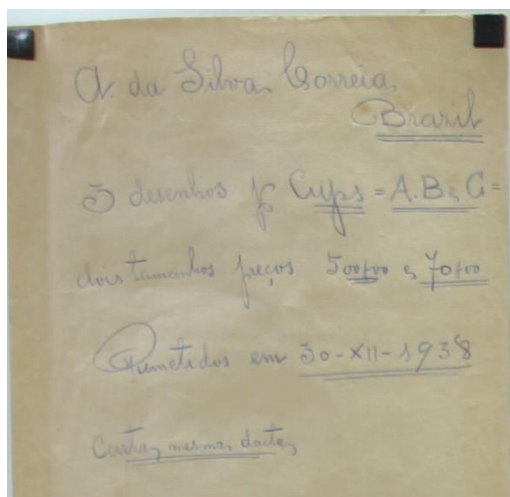 A. da Silva Correia,
Brazil
3 desenhos p/ Cups = A. B e C =
dois tamanhos preços 500$00 e 70$00
Remetidos em 30-XII-1938
Carta, mesma, data,